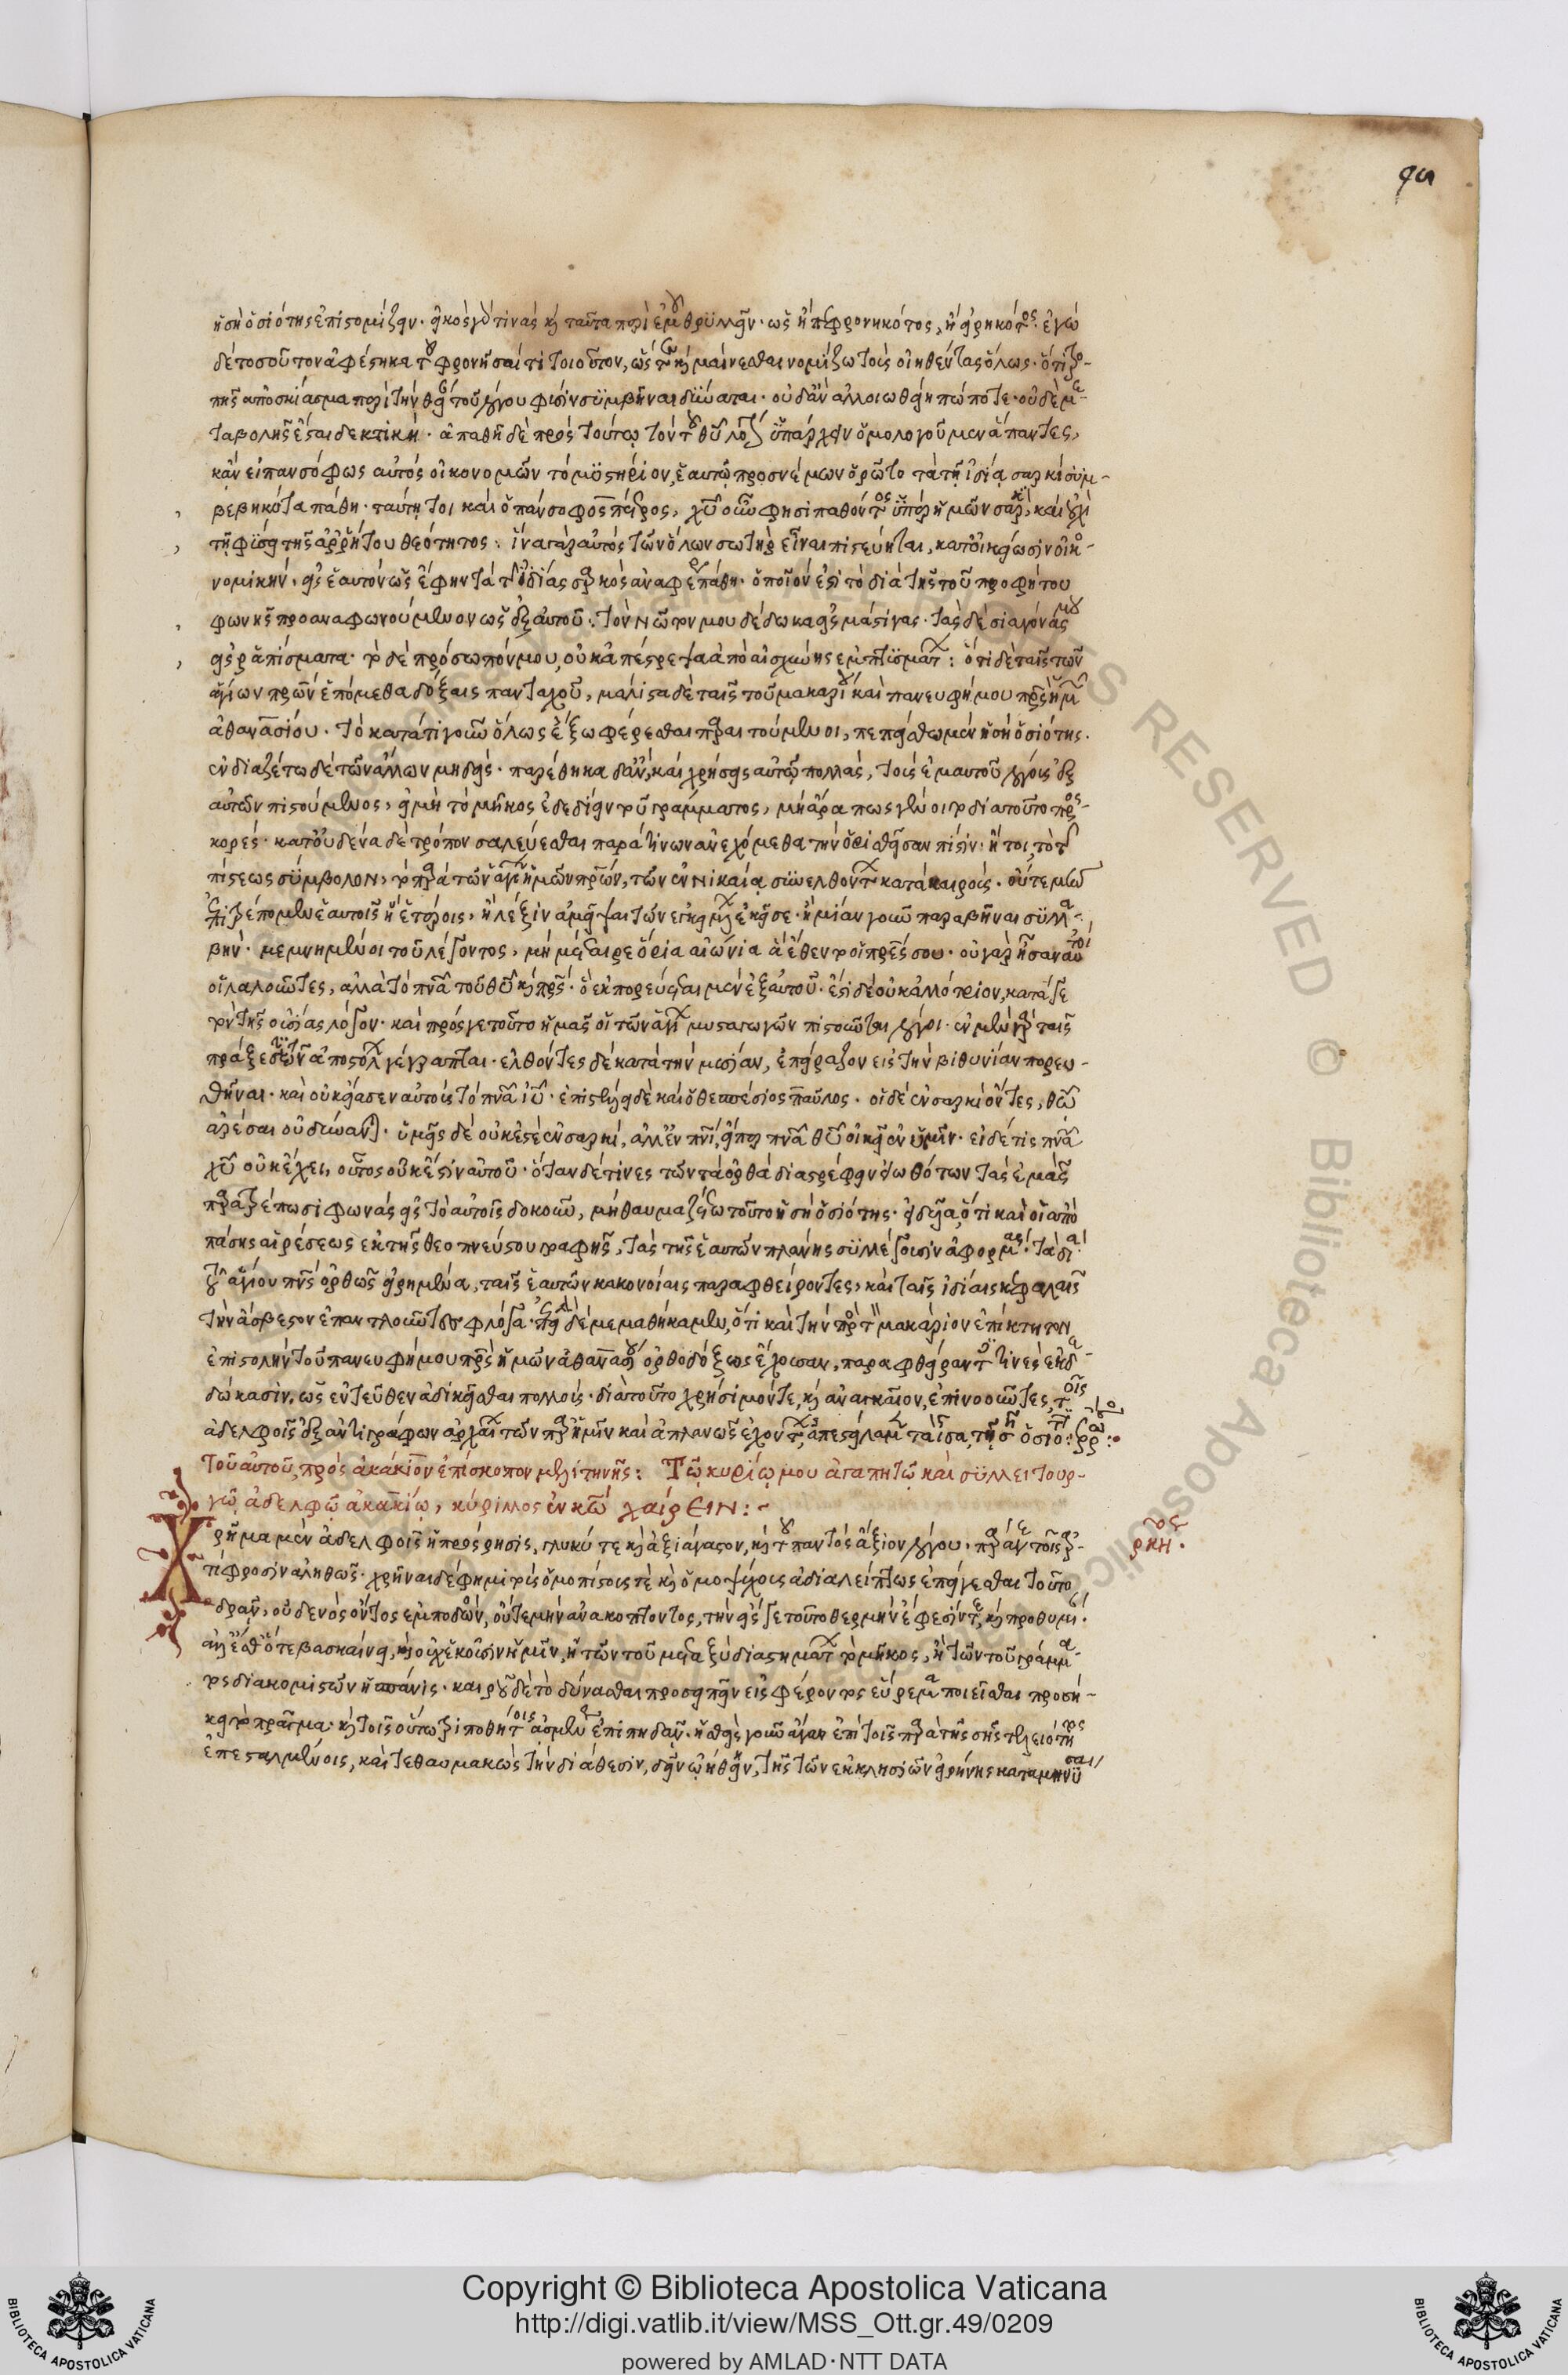 ϙς
ἡ σὴ ὁσιότης ἐπιστομίζειν. εἰκὸς γάρ τινὰς καὶ ταῦτα περὶ ἐμοῦ θρυλλεῖν. ὡς ἢ πεφρονηκότος, ἢ εἰρηκότος. ἐγὼ
δὲ τοσοῦτον ἀφέστηκα τοῦ φρονῆσαί τι τοιοῦτον, ὥστε καὶ μαίνεσθαι νομίζω τοὺς οἰηθέντας ὅλως. ὅτι τρο-
πῆς ἀποσκίασμα περὶ τὴν θείαν τοῦ λόγου φύσιν συμβῆναι δύναται. οὐδ' ἂν ἀλλοιωθείη πώποτε. οὐδὲ με-
ταβολῆς ἔσται δεκτική. ἀπαθῆ δὲ πρὸς τούτῳ τὸν τοῦ θυ λόγον ὑπάρχειν ὁμολογοῦμεν ἅπαντες,
κἂν εἰ πανσόφως αὐτὸς οἰκονομῶν τὸ μυστήριον, ἑαυτῷ προσνέμων ὁρῷτο τὰ τῇ ἰδίᾳ σαρκὶ συμ-
βεβηκότα πάθη. ταύτῃ τοι καὶ ὁ πάνσοφος πέτρος, χυ οὖν φησὶ παθόντος ὑπὲρ ἡμῶν σαρκὶ, καὶ οὐχὶ
τῇ φύσει τῆς ἀρρήτου θεότητος. ἵνα γὰρ αὐτὸς τῶν ὅλων σωτὴρ εἶναι πιστεύηται, κατ' οἰκείωσιν οἰκο-
νομικὴν. εἰς ἑαυτὸν ὡς ἔφην τὰ τῆς ἰδίας σαρκὸς ἀναφέρει πάθη. ὁποῖόν ἐστι τὸ διὰ τῆς τοῦ προφήτου
φωνῆς προαναφωνούμενον ὡς ἐξ αὐτοῦ. τὸν νῶτόν μου δέδωκα εἰς μάστιγας. τὰς δὲ σιαγόνας μου
εἰς ῥαπίσματα. τὸ δὲ πρόσωπόν μου, οὐκ ἀπέστρεψα ἀπὸ αἰσχύνης ἐμπτυσμάτων: ὅτι δὲ ταῖς τῶν
ἁγίων πρων ἑπόμεθα δόξαις πανταχοῦ, μάλιστα δὲ ταῖς τοῦ μακαρίου καὶ πανευφήμου πρς ἡμῶν
ἀθανασίου. τὸ κατά τι γοῦν ὅλως ἔξω φέρεσθαι παραιτούμενοι, πεπείσθω μὲν ἡ σὴ ὁσιότης.
ἐνδιαζέτω δὲ τῶν ἄλλων μηδείς. παρέθηκα δ' ἂν, καὶ χρήσεις αὐτῷ πολλὰς, τοὺς ἐμαυτοῦ λόγους ἐξ
αὐτῶν πιστούμενος, εἰ μὴ τὸ μῆκος ἐδεδίειν τοῦ γράμματος, μὴ ἄρα πως γένοιτο διὰ τοῦτο προσ-
κορές. κατ' οὐδένα δὲ τρόπον σαλεύεσθαι παρά τινων ἀνεχόμεθα τὴν ὁρισθεῖσαν πίστιν. ἤτοι, τὸ τῆς
πίστεως σύμβολον, τὸ παρὰ τῶν ἁγίων ἡμῶν πρων, τῶν ἐν νικαίᾳ συνελθόντων κατὰ καιρούς. οὔτε μὴν
ἐπιτρέπομεν ἑαυτοῖς ἢ ἑτέροις, ἢ λέξιν ἀμεῖψαι τῶν ἐγκειμένων ἐκεῖσε. ἢ μίαν γοῦν παραβῆναι συλλα-
βήν. μεμνημένοι τοῦ λέγοντος, μὴ μέταιρε ὅρια αἰώνια ἃ ἔθεντο οἱ πρες σου. οὐ γὰρ ἦσαν αὐτοὶ
οἱ λαλοῦντες, ἀλλὰ τὸ πνα τοῦ θυ καὶ πρς. ὃ ἐκπορεύεται μὲν ἐξ αὐτοῦ. ἔστι δὲ οὐκ ἀλλότριον, κατά γε
τὸν τῆς οὐσίας λόγον. καὶ πρός γε τοῦτο ἡμᾶς οἱ τῶν ἁγίων μυσταγωγῶν πιστοῦνται λόγοι. ἐν μὲν γὰρ ταῖς
πράξεσι τῶν ἀποστόλων γέγραπται. ἐλθόντες δὲ κατὰ τὴν μυσίαν, ἐπείραζον εἰς τὴν βιθυνίαν πορευ-
θῆναι. καὶ οὐκ εἴασεν αὐτοὺς τὸ πνα ιυ. ἐπιστέλλει δὲ καὶ ὁ θεσπέσιος παῦλος. οἱ δὲ ἐν σαρκὶ ὄντες, θω
ἀρέσαι οὐ δύνανται. ὑμεῖς δὲ οὐκ ἐστὲ ἐν σαρκὶ, ἀλλ' ἐν πνι, εἴπερ πνα θυ οἰκεῖ ἐν ὑμῖν. εἰ δέ τις πνα
χυ οὐκ ἔχει, οὗτος οὐκ ἔστιν αὐτοῦ. ὅταν δέ τινες τῶν τὰ ὀρθὰ διαστρέφειν εἰωθότων τὰς ἐμὰς
παρατρέπωσι φωνὰς εἰς τὸ αὐτοῖς δοκοῦν, μὴ θαυμαζέτω τοῦτο ἡ σὴ ὁσιότης. εἰδυῖα, ὅτι καὶ οἱ ἀπὸ
πάσης αἱρέσεως ἐκ τῆς θεοπνεύστου γραφῆς, τὰς τῆς ἑαυτῶν πλάνης συλλέγουσιν ἀφορμάς. τὰ διὰ
τοῦ ἁγίου πνς ὀρθῶς εἰρημένα, ταῖς ἑαυτῶν κακονοίαις παραφθείροντες, καὶ ταῖς ἰδίαις κεφαλαῖς
τὴν ἄσβεστον ἐπαντλοῦντες φλόγα. ἐπειδὴ δὲ μεμαθήκαμεν, ὅτι καὶ τὴν πρὸς τὸν μακάριον ἐπίκτητον
ἐπιστολὴν τοῦ πανευφήμου πρς ἡμῶν ἀθανασίου ὀρθοδόξως ἔχουσαν, παραφθείραντές τινες ἐκδε-
δώκασιν, ὡς ἐντεῦθεν ἀδικεῖσθαι πολλούς. διὰ τοῦτο χρήσιμόν τε, καὶ ἀναγκαῖον, ἐπινοοῦντες, τοῖς
ἀδελφοῖς ἐξ ἀντιγράφων ἀρχαίων τῶν παρ' ἡμῖν καὶ ἀπλανῶς ἐχόντων, ἀπεστείλαμεν τὰ ἴσα, τῇ σῇ ὁσιότητι: ἔρρωσο:
Τοῦ αὐτοῦ, πρὸς ἀκάκιον ἐπίσκοπον μελιτηνῆς: Τῷ κυρίῳ μου ἀγαπητῷ καὶ συλλειτουρ-
γῷ ἀδελφῷ ἀκακίῳ, κύριλλος ἐν κω χαίρειν:
ρκη.
Χρῆμα μὲν ἀδελφοῖς ἡ πρόσρησις, γλυκύ τε καὶ ἀξιάγαστον, καὶ τοῦ παντὸς ἄξιον λόγου. παρά γε τοῖς ἀρ-
τίφροσιν ἀληθῶς. χρῆναι δὲ φημὶ τοὺς ὁμοπίστους τὲ καὶ ὁμοψύχους ἀδιαλείπτως ἐπείγεσθαι τοῦτο
δρᾶν, οὐδενὸς ὄντος ἐμποδὼν, οὔτε μὴν ἀνακόπτοντος, τὴν εἴς γε τοῦτο θερμὴν ἔφεσίν τε, καὶ προθυμίαν.
ἀλλ' ἔσθ' ὅτε βασκαίνει, καὶ οὐχ ἑκοῦσιν ἡμῖν, ἢ τῶν τοῦ μεταξὺ διαστημάτων τὸ μῆκος, ἢ τῶν τοῦ γράμμα-
τος διακομιστῶν ἡ σπάνις. καιροῦ δὲ τὸ δύνασθαι προσειπεῖν εἰσφέροντος εὕρεμα ποιεῖσθαι προσή-
κει τὸ πρᾶγμα. καὶ τοῖς οὕτω τριποθήτοις ἀσμένως ἐπιπηδᾶν. ἡσθεὶς γοῦν ἄγαν ἐπὶ τοῖς παρὰ τῆς σῆς τελειότητος
ἐπεσταλμένοις, καὶ τεθαυμακὼς τὴν διάθεσιν, δεῖν ᾠήθην, τῆς τῶν ἐκκλησιῶν εἰρήνης καταμηνῦσαι
Copyright © Biblioteca Apostolica Vaticana
http://digi.vatlib.it/view/MSS_Ott.gr.49/0209
powered by AMLAD·NTT DATA